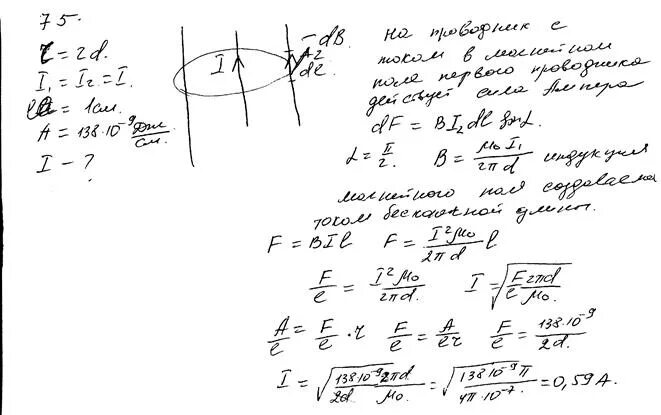 75.
r = 2d.
I₁ = I₂ = I.
l = 1см.
A = 138·10⁻⁹ Дж/см.
I – ?
I
dB.
I₂
dl
На проводник с
током в магнитном
поле первого проводника
действует сила Ампера
dF = BI₂dl sinα.
α = π/2. B = μ₀I₁/2πd индукция
магнитного поля создаваем
током бесконечной длины.
F = BIl F = I²μ₀/2πd l
F/e = I²μ₀/2πd. I = √(F2πd/e μ₀.)
A/e = F/e · r F/e = A/er F/e = 138·10⁻⁹/2d.
I = √(138·10⁻⁹2πd/2d. μ₀.) = √(138·10⁻⁹π/4π·10⁻⁷.) = 0,59 A.